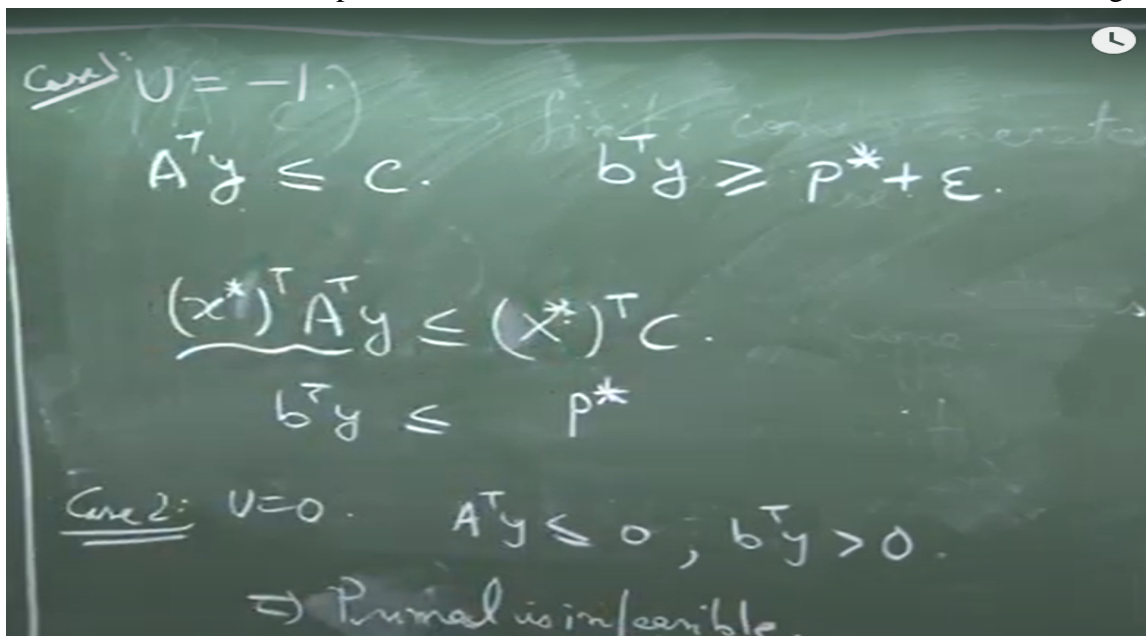 Case 1: U = -1.
Aᵀy ≤ c. bᵀy ≥ p* + ε.
(x*)ᵀ Aᵀy ≤ (x*)ᵀ c.
bᵀy ≤ p*
Case 2: U=0. Aᵀy ≤ 0 ; bᵀy > 0.
⇒ Primal is infeasible.